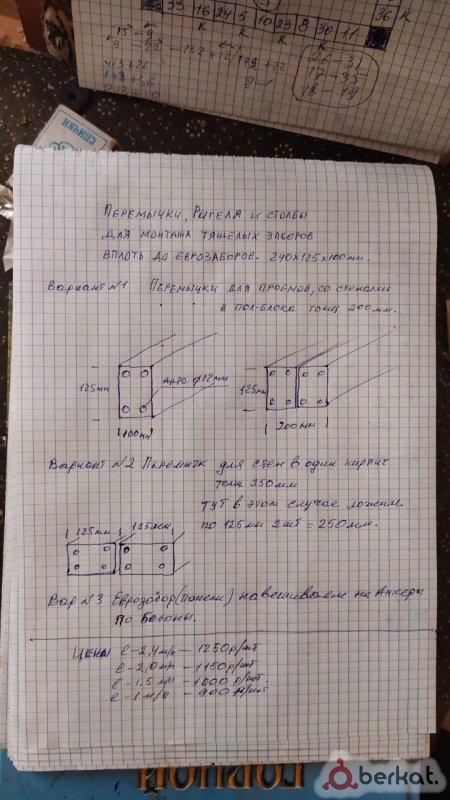 33 16 24 5 10 23 8 30 11 36 К
К К К
15 - 9
9 - 22 - 132 + 12 / 192 + 22
26 - 31
17 - 33
18 - 19
СПИЧКИ
Перемычки, Ригеля и столбы
для монтажа тяжелых заборов
вплоть до еврозаборов. 240х125х100мм.
Вариант №1 Перемычки для проемов, со стенами
в пол-блока толщ. 200мм.
125мм Арро ф12мм 125мм
100мм 200мм
Вариант №2 Перемычк для стен в один кирпич
толщ 250мм
Тут в этом случае ложим
по 125мм 2шт = 250мм.
125мм 125мм
Вар №3 Еврозабор(панели) навешиваем на Анкеры
по Бетоны.
Цены l-2,4м/п - 1250р/шт
l-2,0м/п - 1150р/шт
l-1,5м/п - 1000р/шт.
l-1м/п - 900р/шт
berkat.